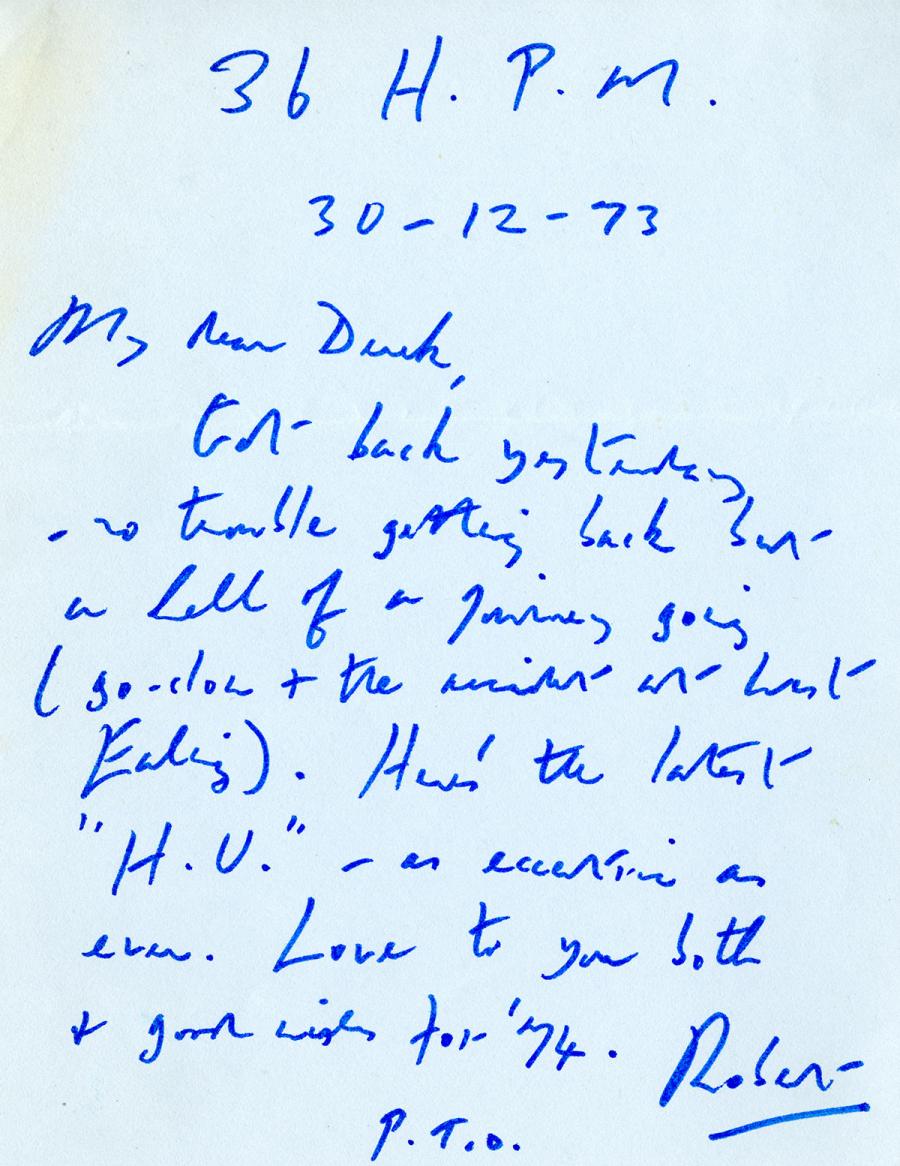 36 H. P. M.
30-12-73
My dear Derek,
Got back yesterday
- no trouble getting back but
a hell of a journey going
(go-slow + the accident at West
Ealing). Here's the latest
"H.U." - as eccentric as
ever. Love to you both
+ good wishes for '74. Robert
P.T.O.